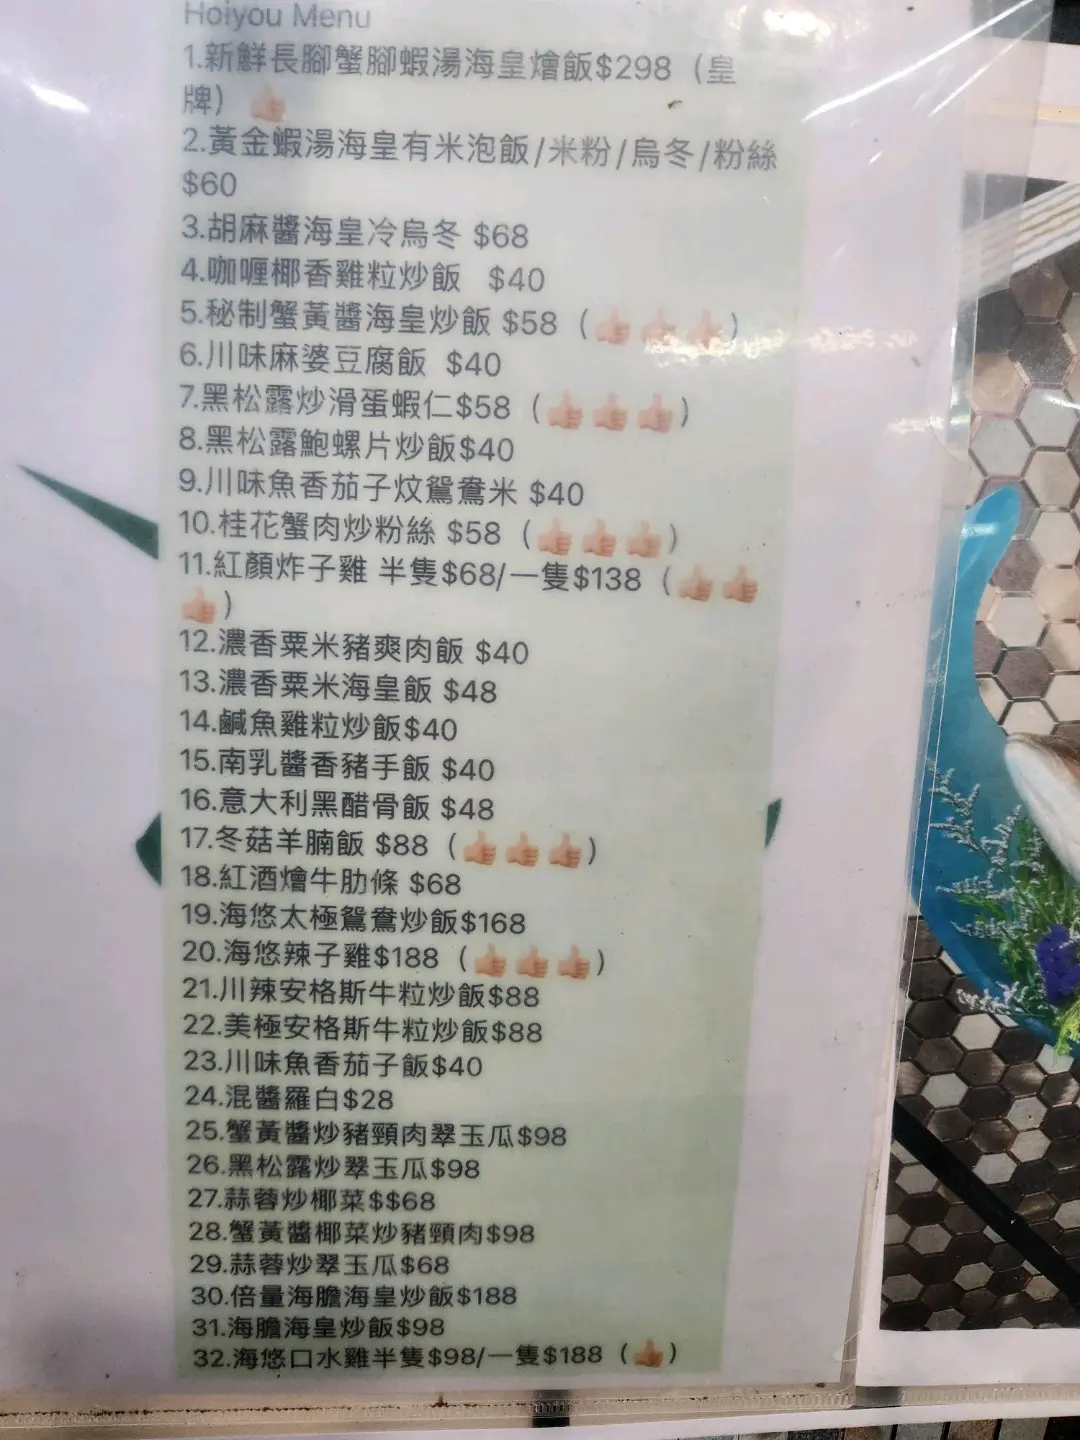 Hoiyou Menu
1.新鮮長腳蟹腳蝦湯海皇燴飯$298（皇
牌）👍🏻
2.黃金蝦湯海皇有米泡飯/米粉/烏冬/粉絲
$60
3.胡麻醬海皇冷烏冬 $68
4.咖喱椰香雞粒炒飯 $40
5.秘制蟹黃醬海皇炒飯 $58（👍🏻👍🏻👍🏻）
6.川味麻婆豆腐飯 $40
7.黑松露炒滑蛋蝦仁$58（👍🏻👍🏻👍🏻）
8.黑松露鮑螺片炒飯$40
9.川味魚香茄子炆鴛鴦米 $40
10.桂花蟹肉炒粉絲 $58（👍🏻👍🏻👍🏻）
11.紅顏炸子雞 半隻$68/一隻$138（👍🏻👍🏻
👍🏻）
12.濃香粟米豬爽肉飯 $40
13.濃香粟米海皇飯 $48
14.鹹魚雞粒炒飯$40
15.南乳醬香豬手飯 $40
16.意大利黑醋骨飯 $48
17.冬菇羊腩飯 $88（👍🏻👍🏻👍🏻）
18.紅酒燴牛肋條 $68
19.海悠太極鴛鴦炒飯$168
20.海悠辣子雞$188（👍🏻👍🏻👍🏻）
21.川辣安格斯牛粒炒飯$88
22.美極安格斯牛粒炒飯$88
23.川味魚香茄子飯$40
24.混醬羅白$28
25.蟹黃醬炒豬頸肉翠玉瓜$98
26.黑松露炒翠玉瓜$98
27.蒜蓉炒椰菜$$68
28.蟹黃醬椰菜炒豬頸肉$98
29.蒜蓉炒翠玉瓜$68
30.倍量海膽海皇炒飯$188
31.海膽海皇炒飯$98
32.海悠口水雞半隻$98/一隻$188（👍🏻）